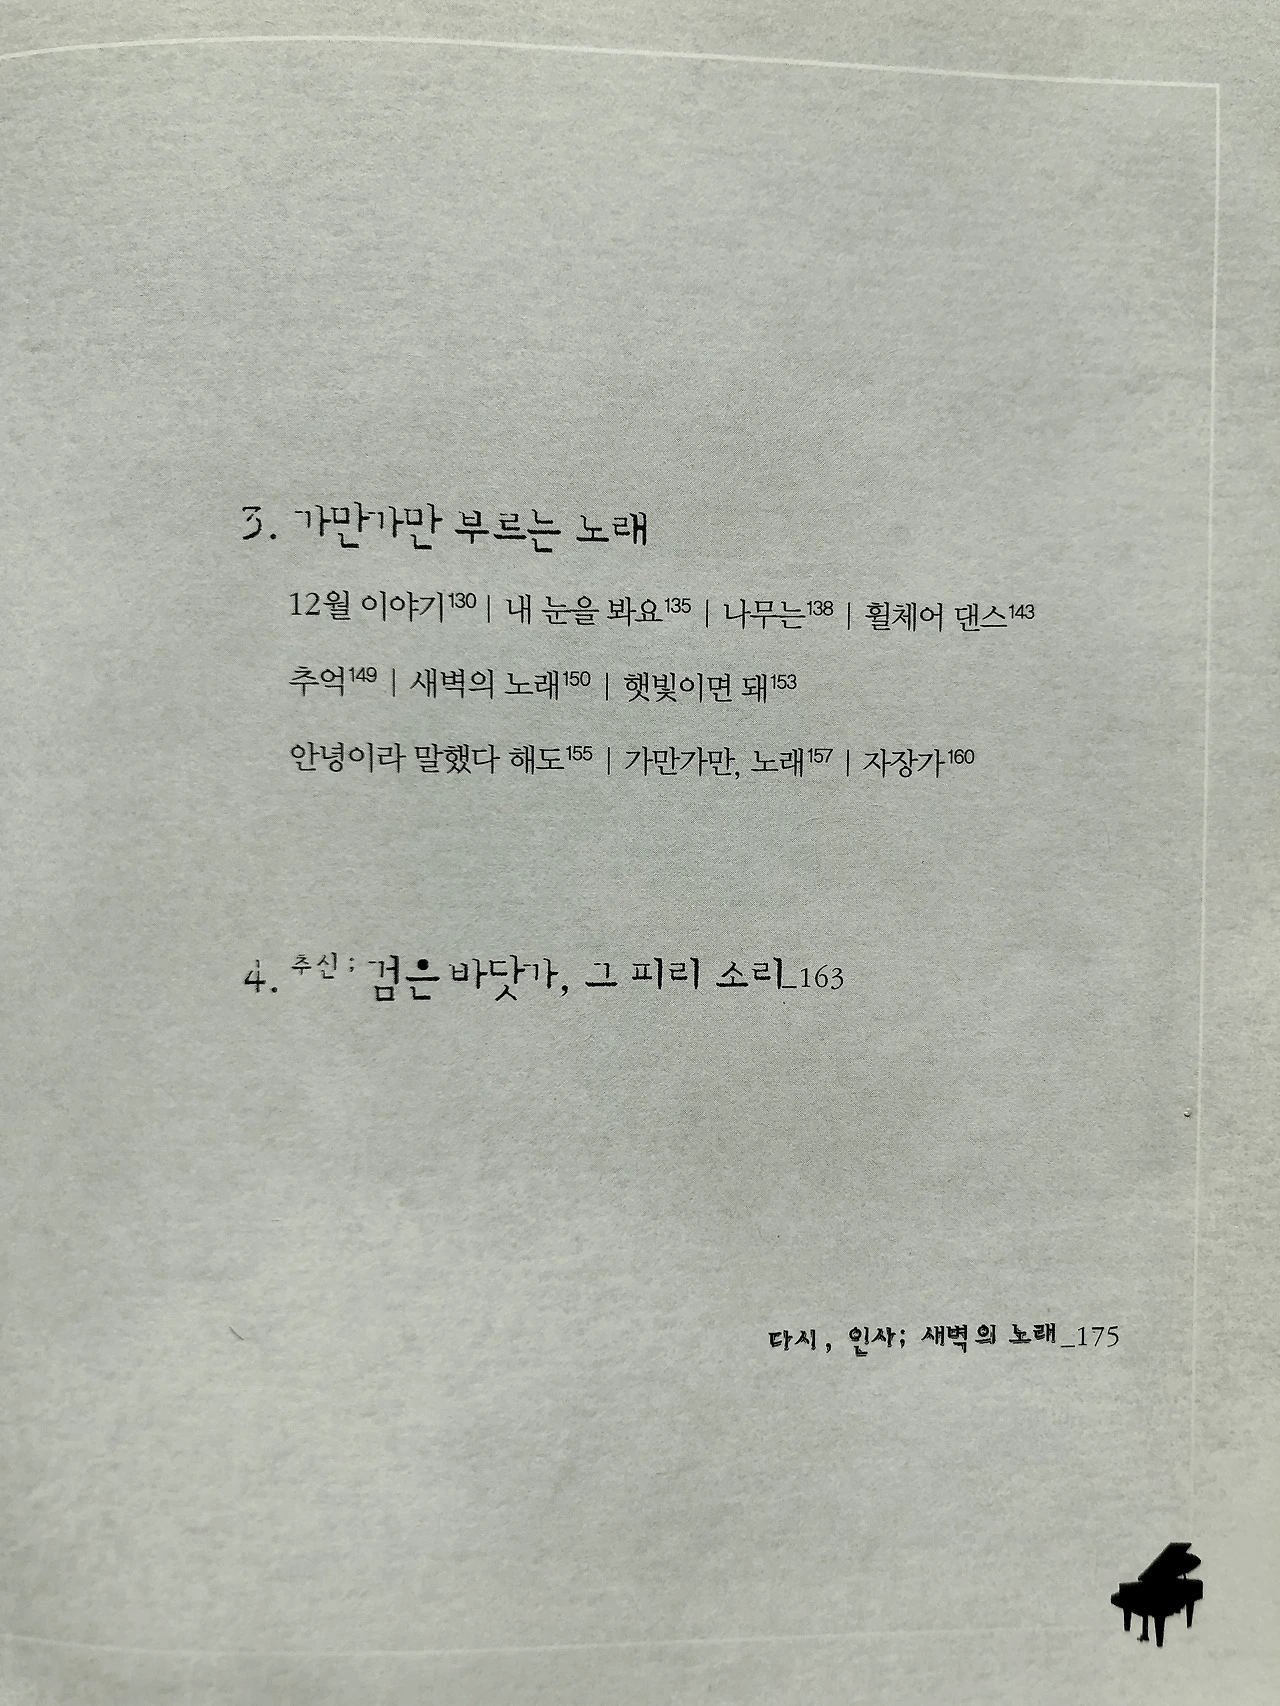 3. 가만가만 부르는 노래
12월 이야기130 | 내 눈을 봐요135 | 나무는138 | 휠체어 댄스143
추억149 | 새벽의 노래150 | 햇빛이면 돼153
안녕이라 말했다 해도155 | 가만가만, 노래157 | 자장가160
4. 추신; 검은 바닷가, 그 피리 소리_163
다시, 인사; 새벽의 노래_175